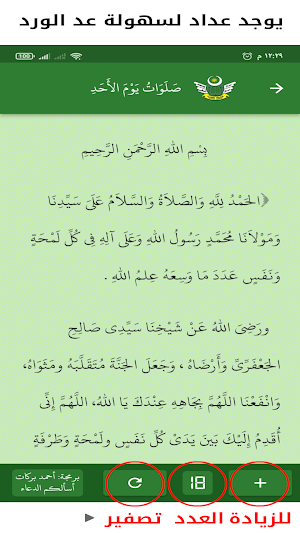 يوجد عداد لسهولة عد الورد
١٢:٢٩ م
100
صَلَوَاتُ يَوْمَ الأَحَدِ
بِسْمِ اللهِ الرَّحْمَنِ الرَّحِيمِ
الحَمْدُ لِلَّهِ وَالصَّلاَةُ وَالسَّلاَمُ عَلَى سَيِّدِنَا
وَمَوْلاَنَا مُحَمَّدٍ رَسُولُ اللهِ وَعَلَى آلِهِ فِي كُلِّ لَمْحَةٍ
وَنَفَسٍ عَدَدَ مَا وَسِعَهُ عِلمُ اللهِ .
ورَضِىَ اللهُ عَنْ شَيْخِنَا سَيِّدِى صَالِحٍ
الجَعْفَرِىِّ وَأَرْضَاهُ ، وَجَعَلَ الجَنَّةَ مُتَقَلَّبَهُ وَمَثْوَاهُ،
وَانْفَعْنَا اللَّهُمَّ بِجَاهِهِ عِنْدَكَ يَا اللهُ، اللَّهُمَّ إِنِّى
أُقَدِمُ إِلَيْكَ بَيْنَ يَدَىْ كُلِّ نَفَسٍ ولَمْحَةٍ وَطَرْفَةٍ
برمجة: أحمد بركات
أسألكم الدعاء
18
للزيادة العدد تصفير